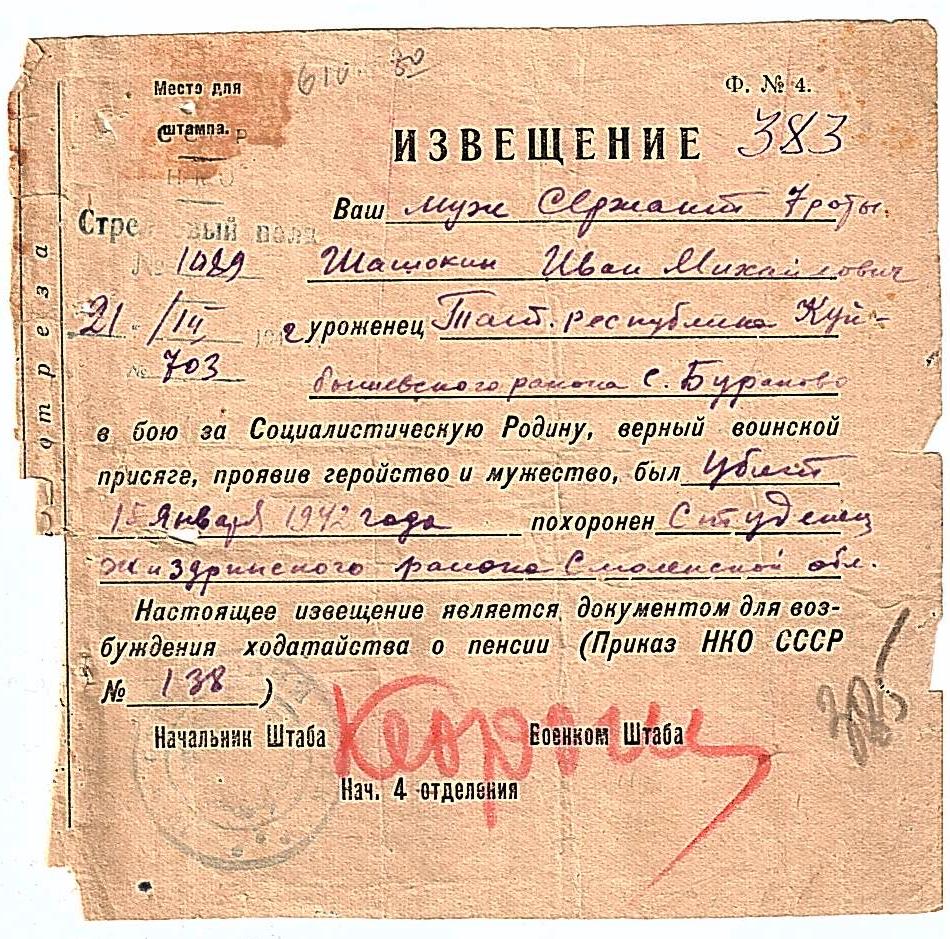 Место для
штампа.
Ф. № 4.
610 80
ИЗВЕЩЕНИЕ 383
С С Р
НКО
Ваш муж Сержант 7 роты.
№ 1089
Шашокин Иван Михайлович
21 /III
уроженец Тат. республика Куй-
№ 703
бышевского района с. Бураково
отреза
в бою за Социалистическую Родину, верный воинской
присяге, проявив геройство и мужество, был убит
15 января 1942 года похоронен Студенец
Жиздринского района Смоленской обл.
Настоящее извещение является документом для воз-
буждения ходатайства о пенсии (Приказ НКО СССР
№ 138 )
Начальник Штаба Военком Штаба
Нач. 4 отделения